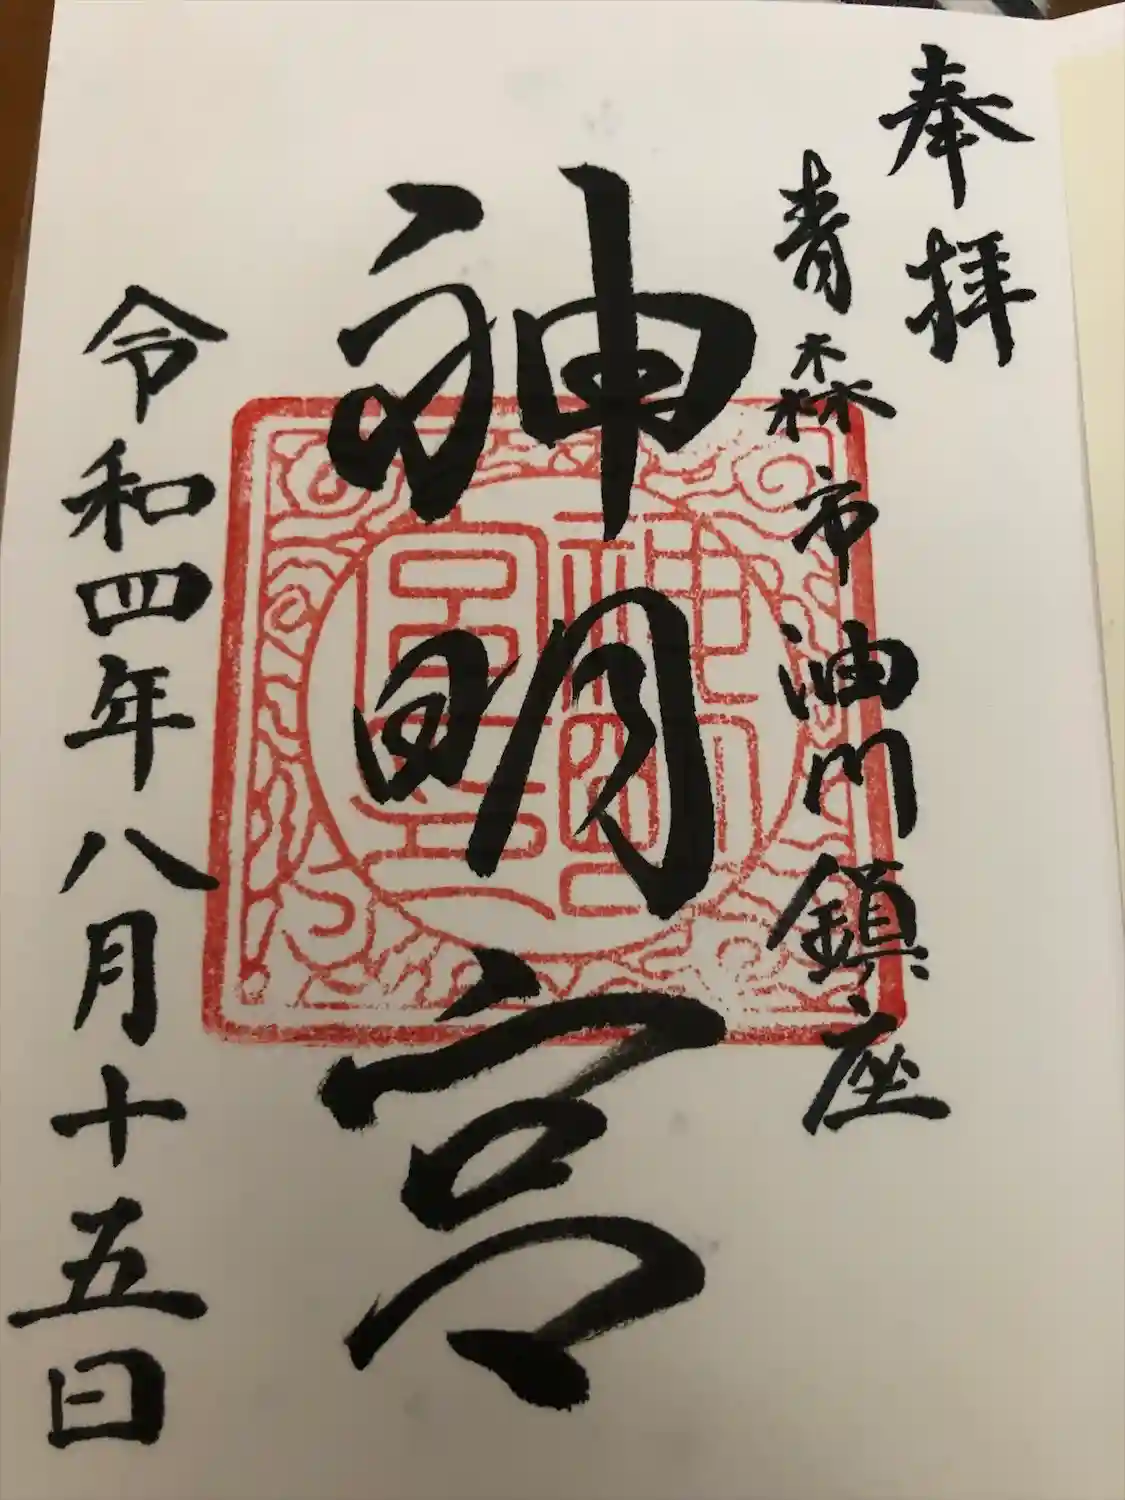 奉拝
青森市油川鎮座
神明宮
神明宮之印
令和四年八月十五日